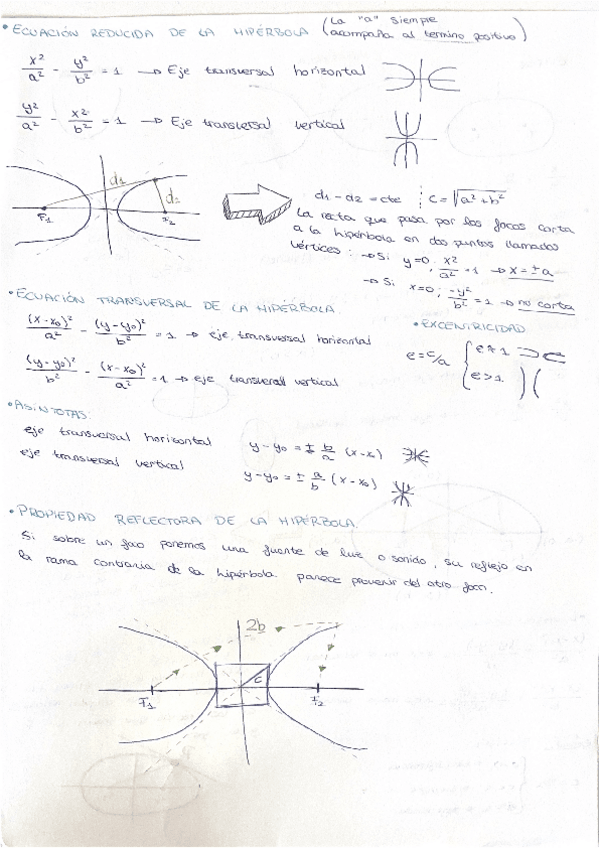 • ECUACIÓN REDUCIDA DE LA HIPÉRBOLA (La "a" siempre acompaña al termino positivo)
x²/a² - y²/b² = 1 → Eje transversal horizontal
y²/a² - x²/b² = 1 → Eje transversal vertical
d₁
d₂
F₁
F₂
d₁ - d₂ = cte ; c = √(a² + b²)
La recta que pasa por los focos corta
a la hipérbola en dos puntos llamados
vértices: → Si y=0, x²/a² = 1 → x = ±a
→ Si x=0; -y²/b² = 1 → no corta
• ECUACIÓN TRANSVERSAL DE LA HIPÉRBOLA.
(x-x₀)²/a² - (y-y₀)²/b² = 1 → eje transversal horizontal
(y-y₀)²/b² - (x-x₀)²/a² = 1 → eje transversall vertical
• EXCENTRICIDAD
e = c/a
e > 1
• ASÍNTOTAS:
eje transversal horizontal y-y₀ = ± b/a (x-x₀)
eje transversal vertical y-y₀ = ± a/b (x-x₀)
• PROPIEDAD REFLECTORA DE LA HIPÉRBOLA.
Si sobre un foco ponemos una fuente de luz o sonido, su reflejo en
la rama contraria de la hipérbola parece provenir del otro foco.
2b
c
F₁
F₂